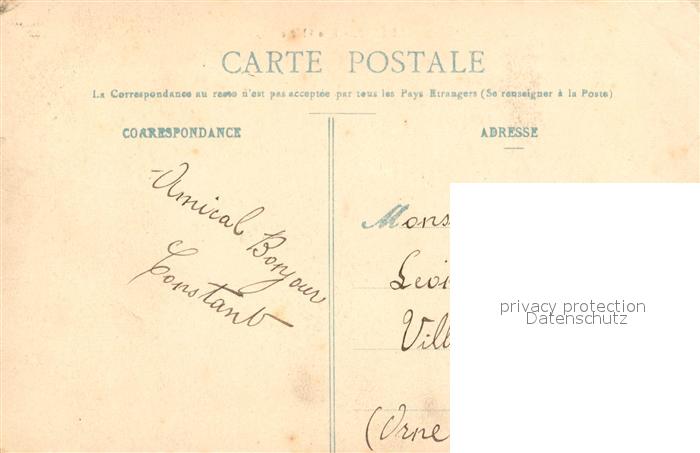 CARTE POSTALE
La Correspondance au recto n'est pas acceptée par tous les Pays Etrangers (Se renseigner à la Poste)
CORRESPONDANCE
ADRESSE
Amical Bonjour
Constant
Mons
Leon
Vill
(Orne
privacy protection
Datenschutz